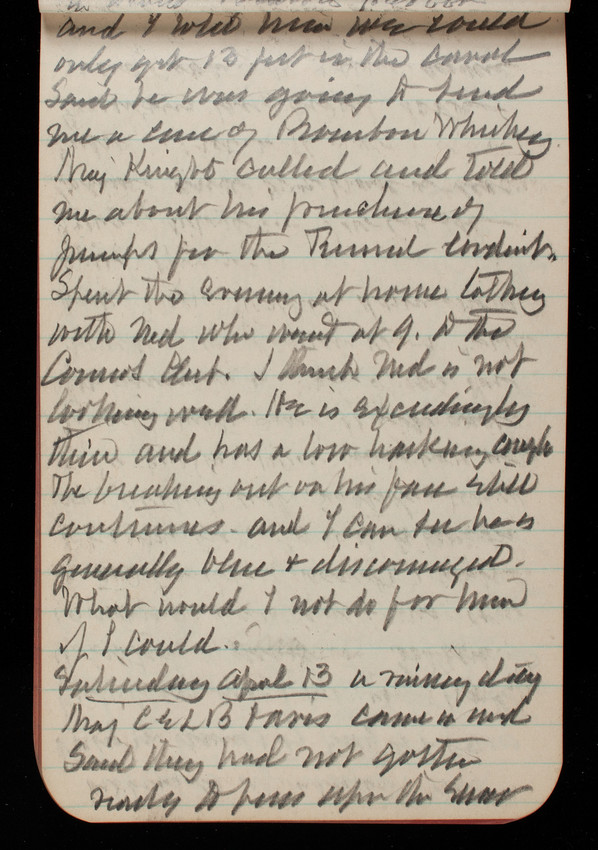 and I told him we could
only get 13 feet in the canal
Said he was going to send
me a case of Bourbon Whiskey
Maj Knight called and told
me about his purchase of
pumps for the Tunnel conduit.
Spent the evening at home
with Ned who went at 9. to the
Cosmos Club. I think Ned is not
looking well. He is exceedingly
thin and has a low hacking cough
The breaking out on his face still
continues. and I can see he is
generally blue & discouraged.
What would I not do for him
if I could.
Saturday April 13 a rainy day
Maj C E L B Davis came in and
Said they had not gotten
ready to pass upon the